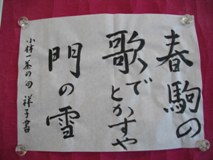 春駒の
歌でとかすや
門の雪
小林一茶の句 祥子書